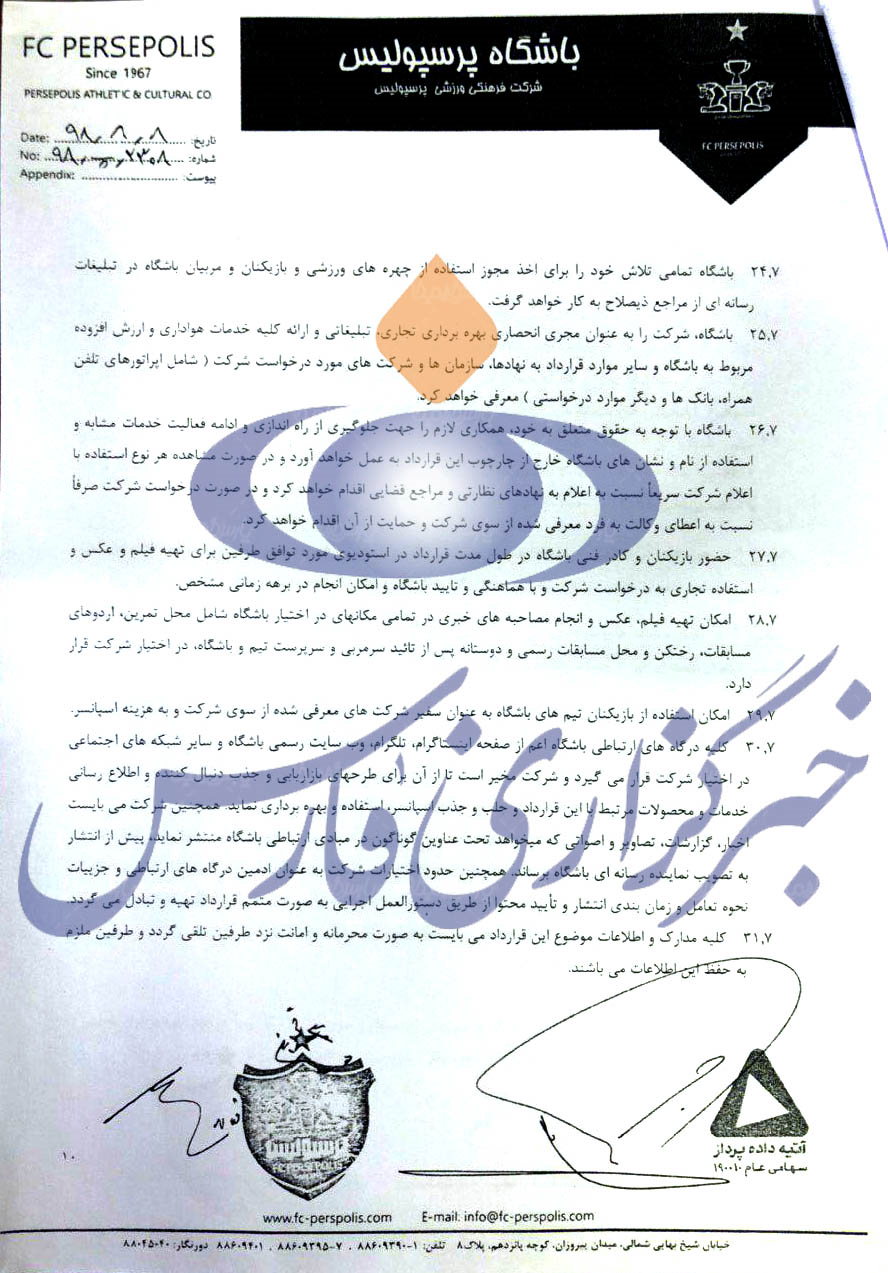 FC PERSEPOLIS
Since 1967
PERSEPOLIS ATHLETIC & CULTURAL CO.
باشگاه پرسپولیس
شرکت فرهنگی ورزشی پرسپولیس
FC PERSEPOLIS
Date: ۹۸ ۸ ۸ تاریخ:
No: ۹۸ ۲۳۰۸ شماره:
Appendix: پیوست:
۲۴.۷ باشگاه تمامی تلاش خود را برای اخذ مجوز استفاده از چهره های ورزشی و بازیکنان و مربیان باشگاه در تبلیغات
رسانه ای از مراجع ذیصلاح به کار خواهد گرفت.
۲۵.۷ باشگاه، شرکت را به عنوان مجری انحصاری بهره برداری تجاری، تبلیغاتی و ارائه کلیه خدمات هواداری و ارزش افزوده
مربوط به باشگاه و سایر موارد قرارداد به نهادها، سازمان ها و شرکت های مورد درخواست شرکت ( شامل اپراتورهای تلفن
همراه، بانک ها و دیگر موارد درخواستی ) معرفی خواهد کرد.
۲۶.۷ باشگاه با توجه به حقوق متعلق به خود، همکاری لازم را جهت جلوگیری از راه اندازی و ادامه فعالیت خدمات مشابه و
استفاده از نام و نشان های باشگاه خارج از چارچوب این قرارداد به عمل خواهد آورد و در صورت مشاهده هر نوع استفاده با
اعلام شرکت سریعاً نسبت به اعلام به نهادهای نظارتی و مراجع قضایی اقدام خواهد کرد و در صورت درخواست شرکت صرفاً
نسبت به اعطای وکالت به فرد معرفی شده از سوی شرکت و حمایت از آن اقدام خواهد کرد.
۲۷.۷ حضور بازیکنان و کادر فنی باشگاه در طول مدت قرارداد در استودیوی مورد توافق طرفین برای تهیه فیلم و عکس و
استفاده تجاری به درخواست شرکت و با هماهنگی و تایید باشگاه و امکان انجام در برهه زمانی مشخص.
۲۸.۷ امکان تهیه فیلم، عکس و انجام مصاحبه های خبری در تمامی مکانهای در اختیار باشگاه شامل محل تمرین، اردوهای
مسابقات، رختکن و محل مسابقات رسمی و دوستانه پس از تائید سرمربی و سرپرست تیم و باشگاه، در اختیار شرکت قرار
دارد.
۲۹.۷ امکان استفاده از بازیکنان تیم های باشگاه به عنوان سفیر شرکت های معرفی شده از سوی شرکت و به هزینه اسپانسر.
۳۰.۷ کلیه درگاه های ارتباطی باشگاه اعم از صفحه اینستاگرام، تلگرام، وب سایت رسمی باشگاه و سایر شبکه های اجتماعی
در اختیار شرکت قرار می گیرد و شرکت مخیر است تا از آن برای طرحهای بازاریابی و جذب دنبال کننده و اطلاع رسانی
خدمات و محصولات مرتبط با این قرارداد و جلب و جذب اسپانسر، استفاده و بهره برداری نماید. همچنین شرکت می بایست
اخبار، گزارشات، تصاویر و اصواتی که میخواهد تحت عناوین گوناگون در مبادی ارتباطی باشگاه منتشر نماید، پیش از انتشار
به تصویب نماینده رسانه ای باشگاه برساند. همچنین حدود اختیارات شرکت به عنوان ادمین درگاه های ارتباطی و جزییات
نحوه تعامل و زمان بندی انتشار و تأیید محتوا از طریق دستورالعمل اجرایی به صورت متمم قرارداد تهیه و تبادل می گردد.
۳۱.۷ کلیه مدارک و اطلاعات موضوع این قرارداد می بایست به صورت محرمانه و امانت نزد طرفین تلقی گردد و طرفین ملزم
به حفظ این اطلاعات می باشند.
خبرگزاری فارس
FC PERSEPOLIS
آتیه داده پرداز
سهامی عام ۱۹۰۰۱۰
۱۰
www.fc-perspolis.com E-mail: info@fc-perspolis.com
خیابان شیخ بهایی شمالی، میدان پیروزان، کوچه پانزدهم، پلاک۸ تلفن: ۱-۸۸۶۰۹۳۹۰ ، ۷-۸۸۶۰۹۳۹۵ ، ۸۸۶۰۹۴۰۱ دورنگار: ۸۸۰۴۵۰۴۰